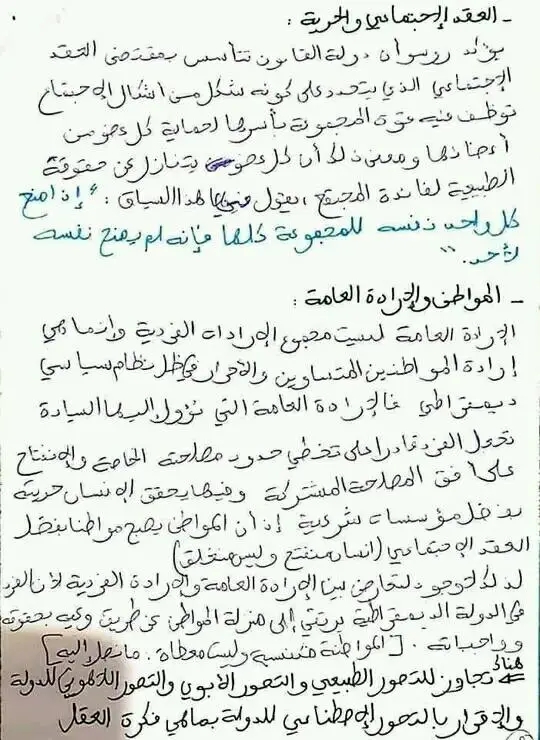 - العقد الإجتماعي والحرية :
يؤكد روسو أن دولة القانون تتأسس بمقتضى العقد
الإجتماعي الذي يتحدد على كونه شكل من أشكال الإجتماع
توظف فيه قوة المجموعة بأسرها لحماية كل عضو من
أعضائها ومعنى ذلك أن كل عضو يتنازل عن حقوقه
الطبيعية لفائدة المجتمع ، يقول في هذا السياق : "إذا منح
كل واحد نفسه للمجموعة كلها فإنه لم يمنح نفسه
لأحد."
- المواطن والإرادة العامة :
الإرادة العامة ليست مجموع الإرادات الفردية وإنما هي
إرادة المواطنين المتساوين والأحرار في ظل نظام سياسي
ديمقراطي فالإرادة العامة التي تؤول إليها السيادة
تجعل الفرد قادرا على تخطي حدود مصلحته الخاصة والإنفتاح
على أفق المصلحة المشتركة وفيها يحقق الإنسان حريته
بفضل مؤسسات شرعية إذ أن المواطن يصبح مواطنا بفضل
العقد الإجتماعي (إنسان منفتح وليس منغلق)
لذلك لا وجود لتعارض بين الإرادة العامة والإرادة الفردية لأن الفرد
في الدولة الديمقراطية يرتقي إلى منزلة المواطن عن طريق وعيه بحقوقه
وواجباته . [المواطنة مكتسبة وليست معطاة . ما نصل إليه]
هناك تجاوز للتصور الطبيعي والتصور الأبوي والتصور اللاهوتي للدولة
والإقرار بالتصور الإصطناعي للدولة بما هي فكرة العقل